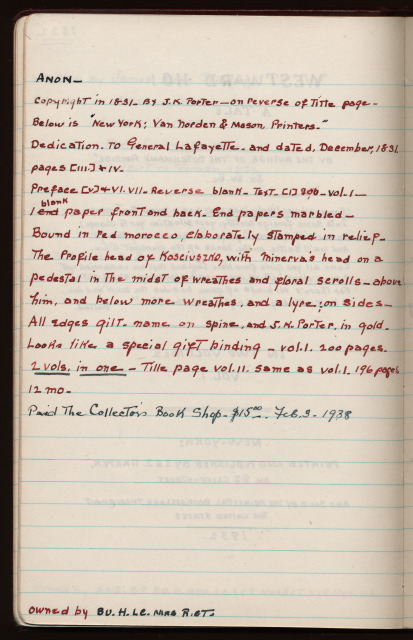 Anon—
Copyright in 1831- By J.K. Porter—on reverse of Title page-
Below is "New York; Van Norden & Mason Printers."
Dedication. To General Lafayette. and dated, December, 1831
pages [III] & IV.
Preface [V] & VI. VII. Reverse blank- Text [1] 200 - Vol. 1—
blank
1 end paper front and back. End papers marbled—
Bound in red morocco, Elaborately stamped in relief-
The Profile head of Kosciuszko, with Minerva's head on a
pedestal in the midst of wreathes and floral scrolls - above
him, and below more wreathes, and a lyre; on sides-
All edges gilt. name on spine, and J.K. Porter, in gold.
Looks like a special gift binding - Vol. 1. 200 pages.
2 vols. in one - Title page Vol. II. same as Vol. 1. 196 pages
12 mo-
Paid The Collector's Book Shop. $15.00. Feb. 3- 1938
owned by